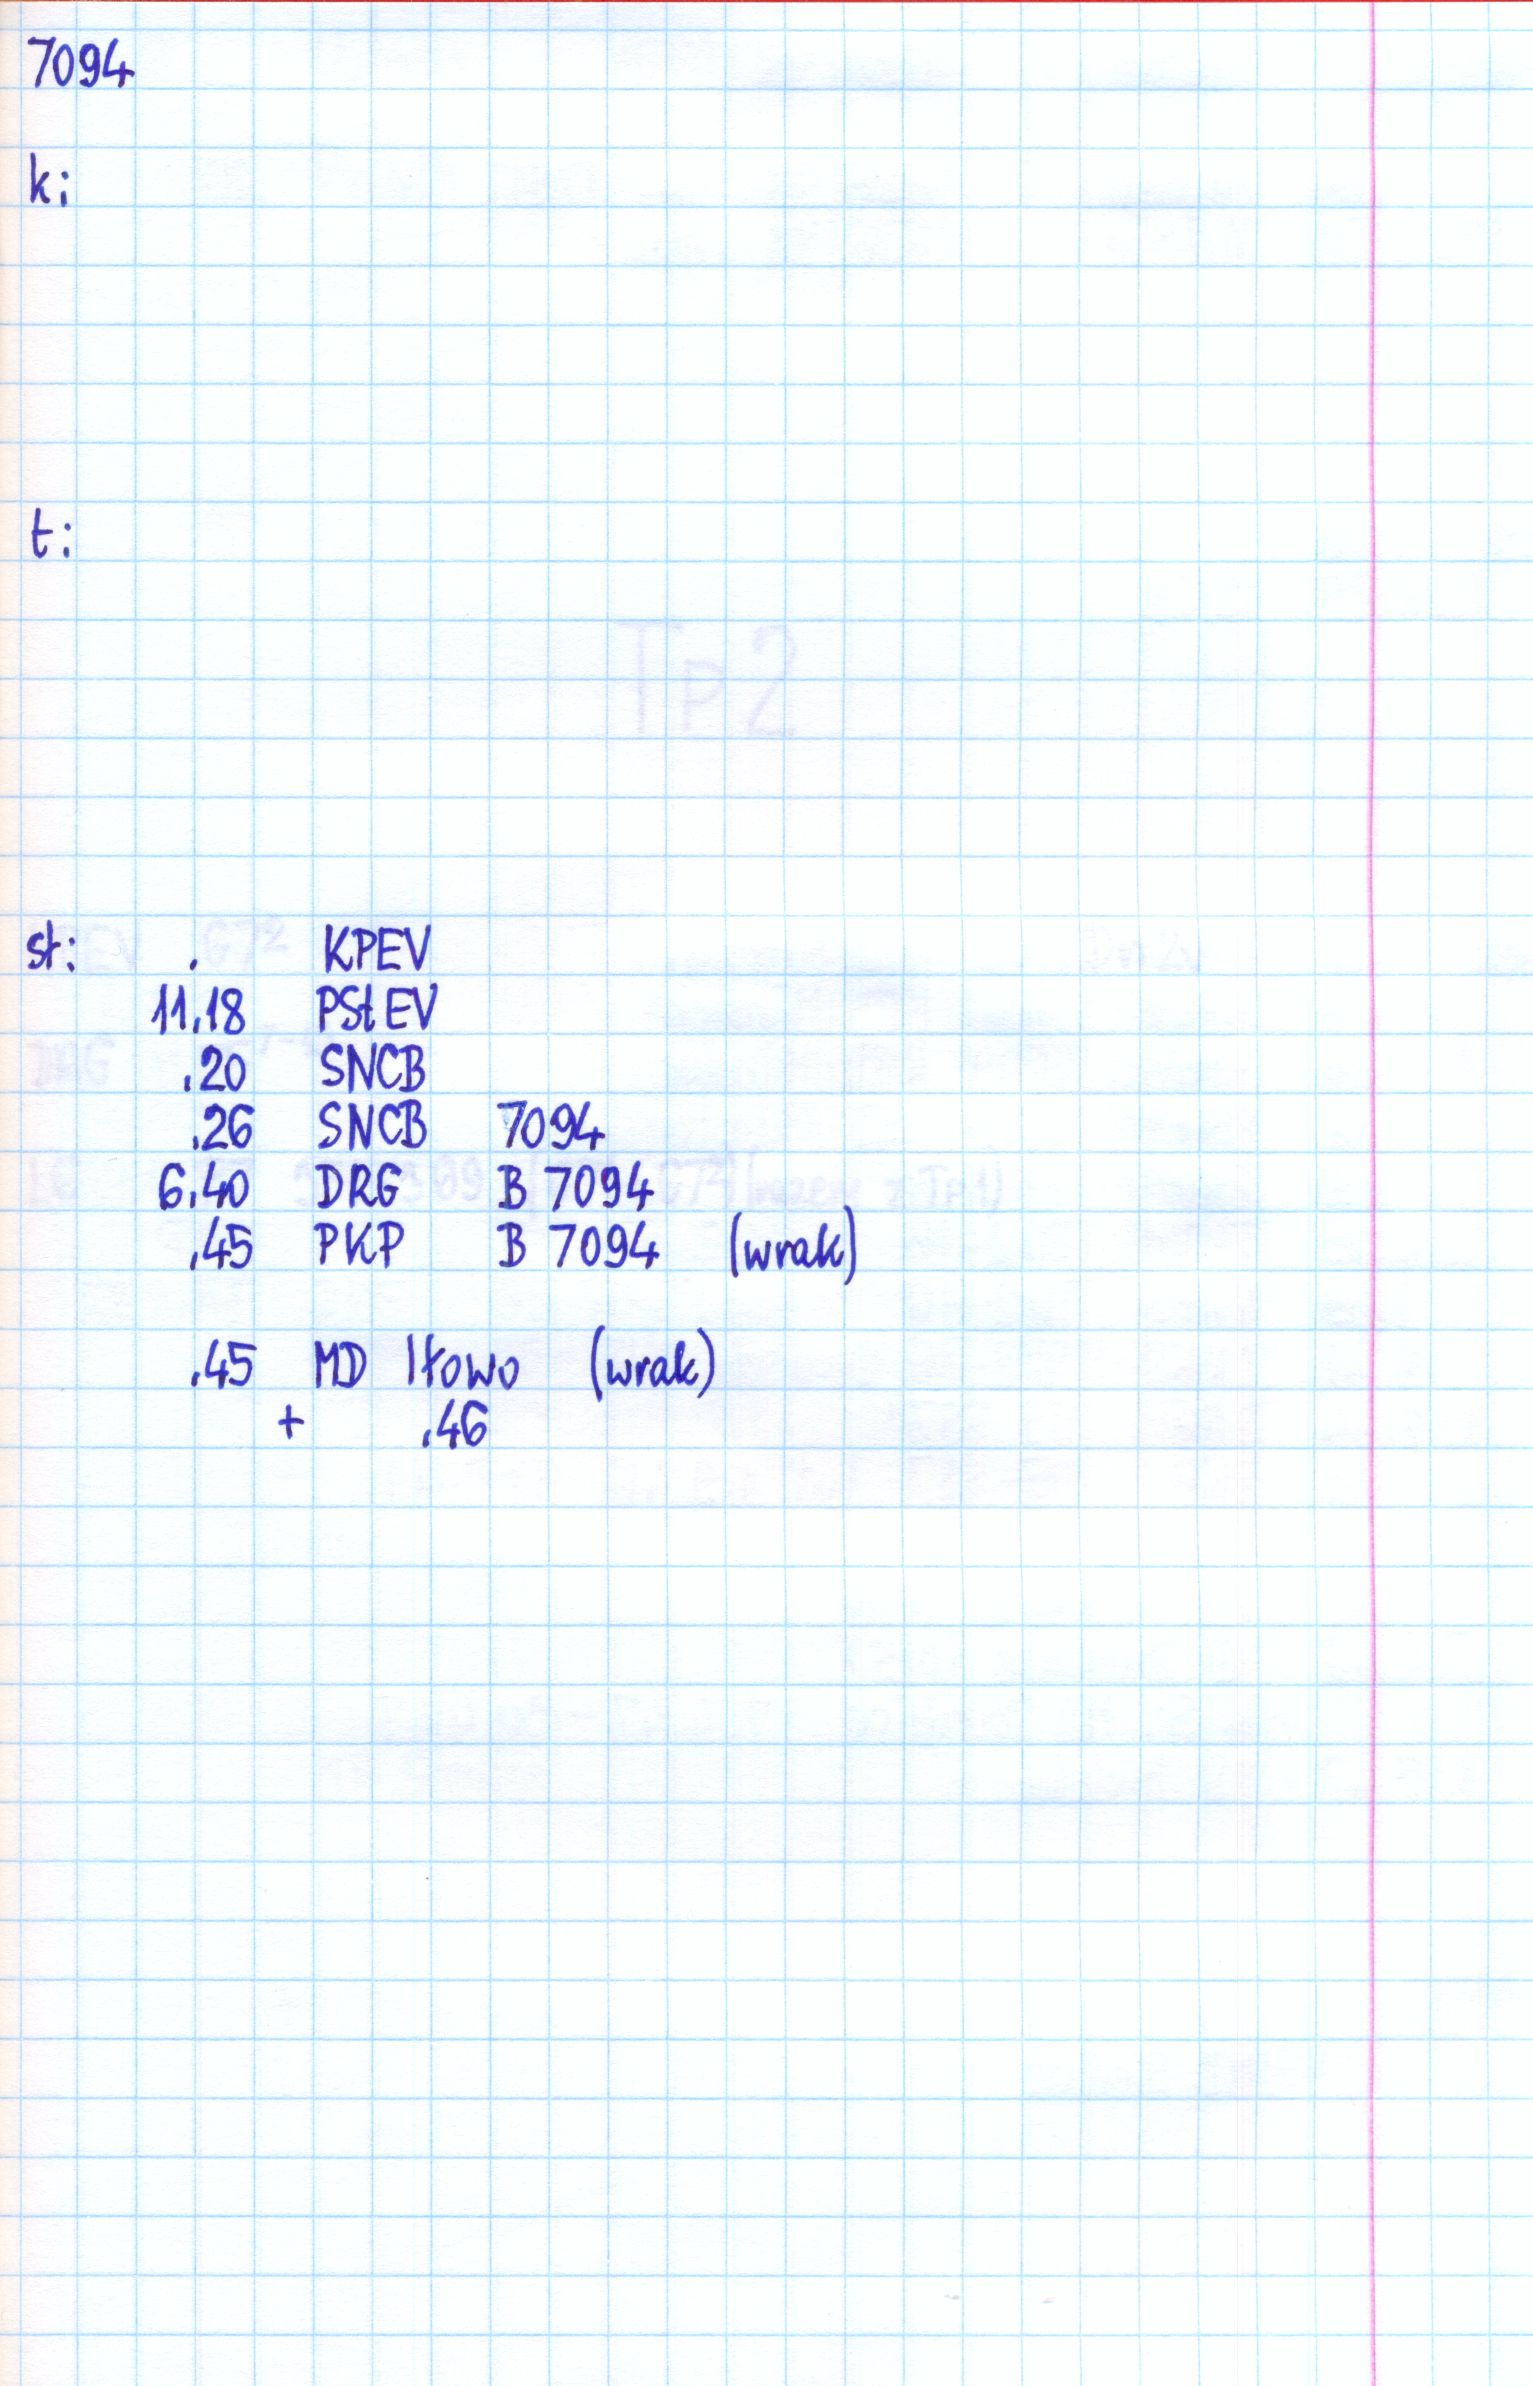 7094
k:
t:
Tp2
st: . KPEV
11.18 PStEV
.20 SNCB
.26 SNCB 7094
6.40 DRG B 7094
.45 PKP B 7094 (wrak)
.45 MD Iłowo (wrak)
+ .46